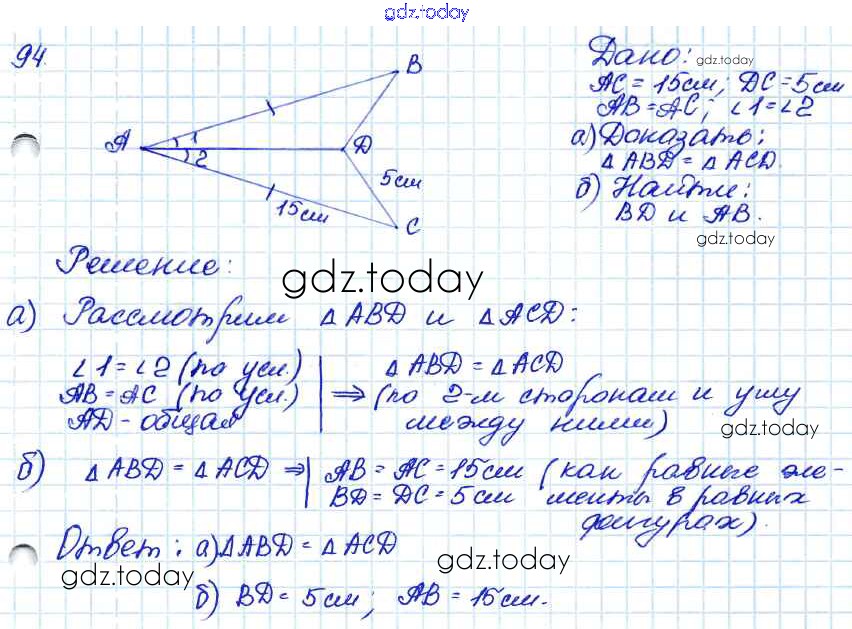 gdz.today
94.
B
A
1
2
D
5см
15см
C
Дано: gdz.today
AC = 15см; DC = 5см
AB = AC; ∠1 = ∠2
а) Доказать:
△ ABD = △ ACD.
б) Найти:
BD и AB.
gdz.today
Решение:
gdz.today
а) Рассмотрим △ ABD и △ ACD:
∠1 = ∠2 (по усл.) | △ ABD = △ ACD
AB = AC (по усл.) | ⇒ (по 2-м сторонам и углу
AD - общая | между ними)
gdz.today
б) △ ABD = △ ACD ⇒ | AB = AC = 15см (как равные эле-
BD = DC = 5см менты в равных
фигурах).
Ответ: а) △ABD = △ ACD
gdz.today
gdz.today
б) BD = 5см; AB = 15см.